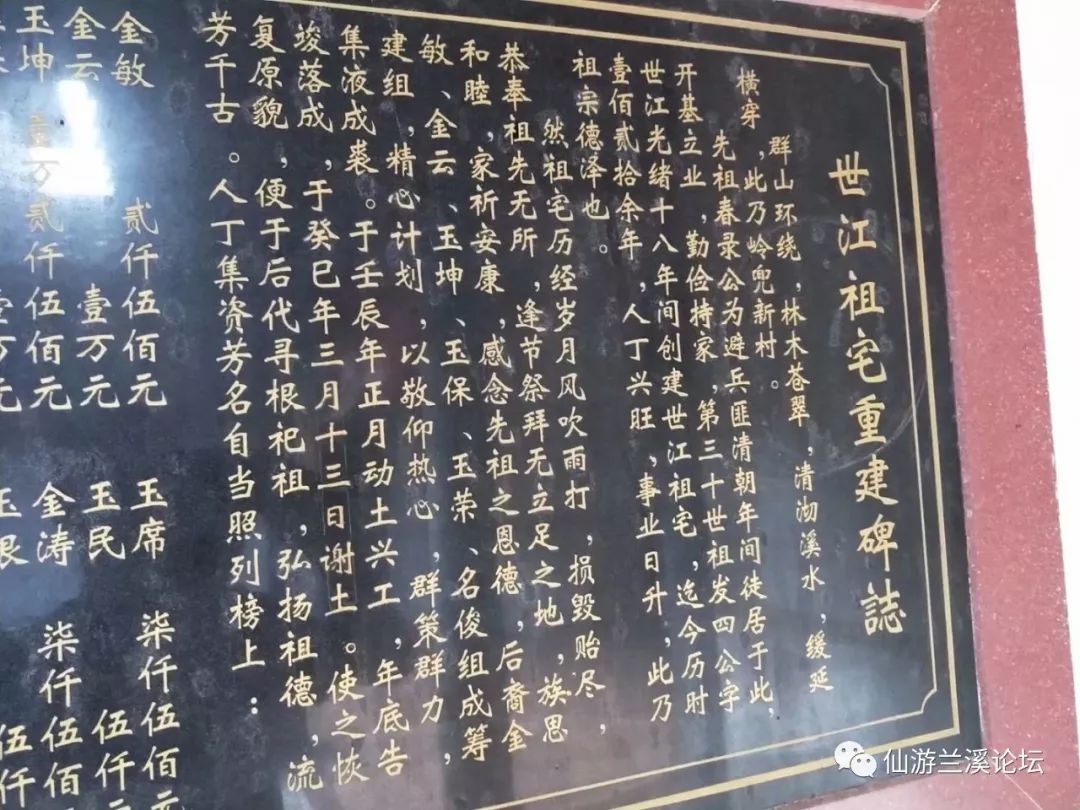 世江祖宅重建碑誌
群山环绕，林木苍翠，清泑溪水，缓延
横穿，此乃岭兜新村。
先祖春录公为避兵匪清朝年间徒居于此，
开基立业，勤俭持家，第三十世祖发四公字
世江光绪十八年间创建世江祖宅，迄今历时
壹佰贰拾余年，人丁兴旺，事业日升，此乃
祖宗德泽也。
然祖宅历经岁月风吹雨打，损毁贻尽，
恭奉祖先无所，逢节祭拜无立足之地，族思
和睦，家祈安康，感念先祖之恩德，后裔金
敏、金云、玉坤、玉保、玉荣、名俊组成筹
建组，精心计划，以敬仰热心，群策群力，
集液成裘。于壬辰年正月动土兴工，年底告
竣落成，于癸巳年三月十三日谢土。使之恢
复原貌，便于后代寻根祀祖，弘扬祖德，流
芳千古。人丁集资芳名自当照列榜上：
金敏 贰仟伍佰元 玉席 柒仟伍佰元
金云 壹万元 玉民 伍仟元
玉坤 壹万贰仟伍佰元 金涛 柒仟伍佰
壹万元 玉 伍仟
仙游兰溪论坛